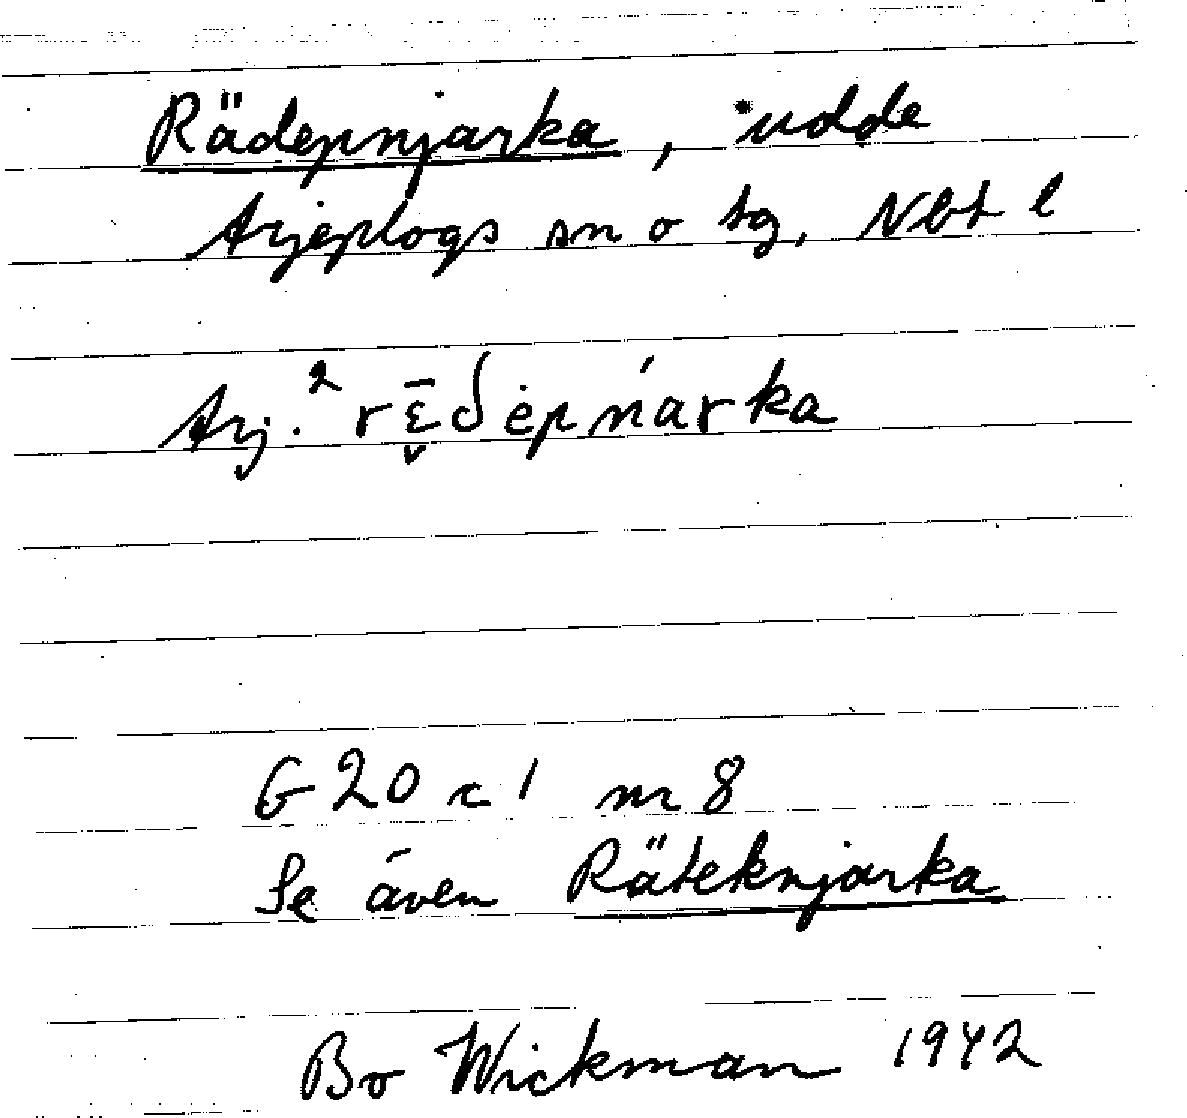 Rädepnjarka, udde
Arjeplogs sn o tg, Nbt l
Arj.² rɛ̬̄δėpńarka
G 20 c 1 nr 8
Se även Räteknjarka
Bo Wickman 1942